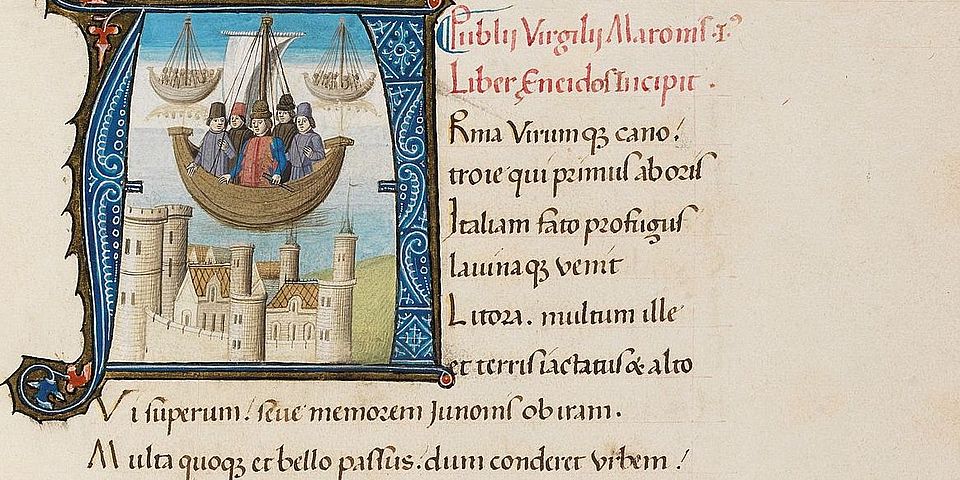 Publij Virgilij Maronis .I.
Liber Eneidos Incipit .
A
Rma Virumqꝫ cano!
troie qui primus ab oris
Italiam fato profugus
lauinaqꝫ venit
Litora . multum ille
et terris iactatus & alto
Vi superum! seue memorem Junonis ob iram .
Multa quoqꝫ et bello passus: dum conderet vrbem!